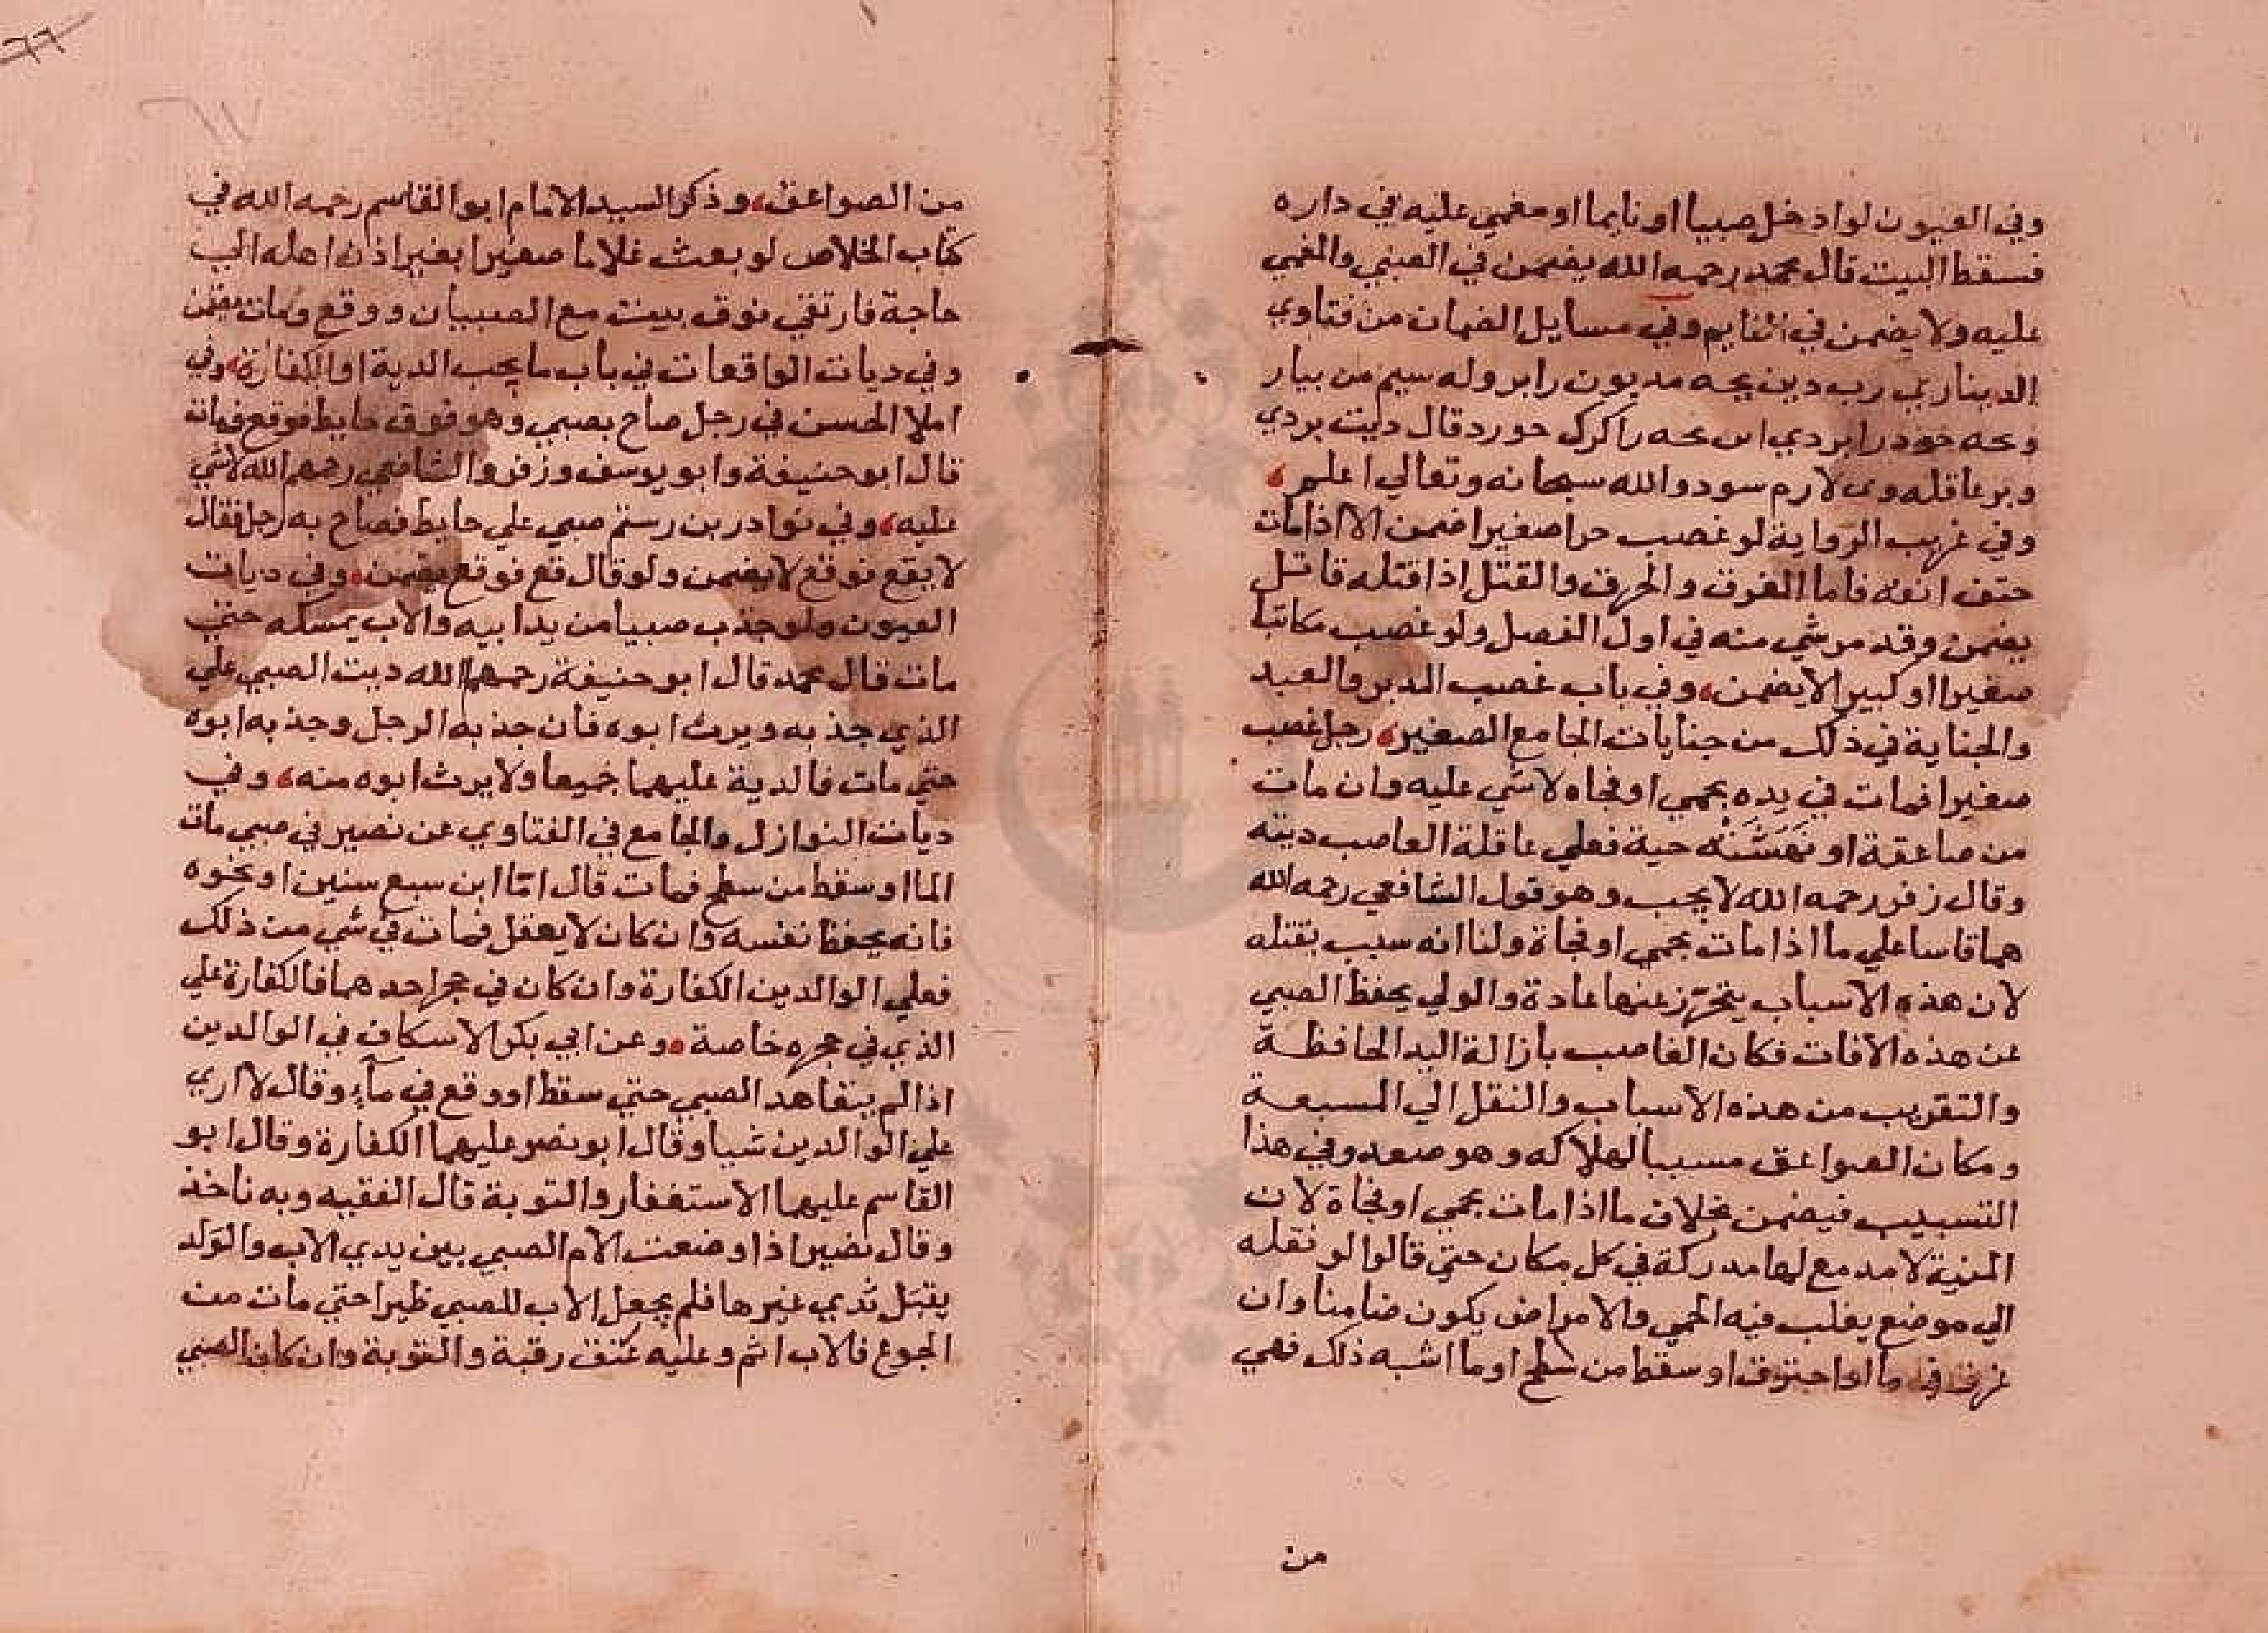 وفي العيون لو ادخل صبيا او نايما او مغمي عليه في داره
فسقط البيت قال محمد رحمه الله يضمن في الصبي والمغمي
عليه ولا يضمن في النايم وفي مسايل الضمان من فتاوي
الديناري رب دين بچه مديون را بر وله سيم من بيار
وبحه خود را بردي اس بحه را كرك خورد قال ديت بردي
وبر عاقله وى لازم سود والله سبحانه وتعالي اعلم
وفي غريب الرواية لو غصب حرا صغيرا ضمن الا اذا مات
حتف انفه فاما الغرق والحرق والقتل اذا قتله قاتل
يضمن وقد مر شي منه في اول الفصل ولو غصب مكاتبا
صغيرا او كبيرا لا يضمن، وفي باب غصب المدبر والعبد
والجناية في ذلك من جنايات الجامع الصغير، رجل غصب
صغيرا فمات في يده بحمي او فجاه لا شي عليه وان مات
من صاعقة او نَهَشَتْه حية فعلي عاقلة الغاصب ديته
وقال زفر رحمه الله لا يجب وهو قول الشافعي رحمه الله
هما قاسا علي ما اذا مات بحمي او فجاة ولنا انه سبب بقتله
لان هذه الاسباب يتحرّز عنها عادة والولي يحفظ الصبي
عن هذه الافات فكان الغاصب بازالة اليد الحافظة
والتقريب من هذه الاسباب والنقل الي المسبعة
ومكان الصواعق مسببا لهلاكه وهو متعد وفي هذا
التسبيب فيضمن بخلاف ما اذا مات بحمي او فجاة لان
المنية لا مدمع لها مدركة في كل مكان حتي قالوا لو نقله
الي موضع يغلب فيه الحمي والامراض يكون ضامنا وان
غرق في ما او احترق او سقط من سطح او ما اشبه ذلك فهي
من
من الصواعق، وذكر السيد الامام ابو القاسم رحمه الله في
كتاب الخلاص لو بعث غلاما صغيرا بغير اذن اهله الي
حاجة فارتقي فوق بيت مع الصبيان ووقع ومات يضمن
وفي ديات الواقعات في باب ما يجب الدية او الكفارة، وفي
املا الحسن في رجل صاح بصبي وهو فوق حايط فوقع فمات
قال ابو حنيفة وابو يوسف وزفر والشافعي رحمهم الله لا شي
عليه، وفي نوادر بن رستم صبي علي حايط فصاح به رجل فقال
لا يقع فوقع لا يضمن ولو قال قع فوقع يضمن، وفي ديات
العيون ولو جذب صبيا من يد ابيه والاب يمسكه حتي
مات قال محمد قال ابو حنيفة رحمهما الله ديت الصبي علي
الذي جذبه ويرث ابوه فان جذبه الرجل وجذبه ابوه
حتي مات فالدية عليهما جميعا ولا يرث ابوه منه، وفي
ديات النوازل والجامع في الفتاوي عن نصير في صبي مات
الما او سقط من سطح فمات قال امّا ابن سبع سنين او نحوه
فانه يحفظ نفسه وان كان لا يعقل فمات في شي من ذلك
فعلي الوالدين الكفارة وان كان في حجر احدهما فالكفارة علي
الذي في حجره خاصة، وعن ابي بكر الاسكاف في الوالدين
اذا لم يتعاهد الصبي حتي سقط او وقع في مآء وقال لا اري
علي الوالدين شيا وقال ابو نصر عليهما الكفارة وقال ابو
القاسم عليهما الاستغفار والتوبة قال الفقيه وبه ناخذ
وقال نصير اذا وضعت الام الصبي بين يدي الاب والولد
يقبل ثدي غيرها فلم يجعل الاب للصبي ظيرا حتي مات من
الجوع فالاب اثم وعليه عتق رقبة والتوبة وان كان الصبي